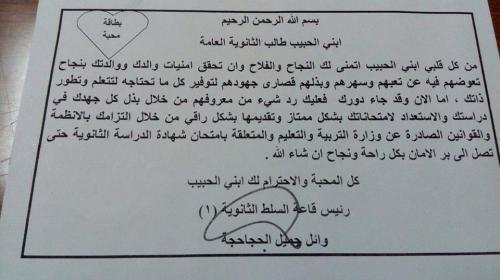 بطاقة
محبة
بسم الله الرحمن الرحيم
ابني الحبيب طالب الثانوية العامة
من كل قلبي ابني الحبيب اتمنى لك النجاح والفلاح وان تحقق امنيات والدك ووالدتك بنجاح
تعوضهم فيه عن تعبهم وسهرهم وبذلهم قصارى جهودهم لتوفير كل ما تحتاجه لتتعلم وتطور
ذاتك ، اما الان وقد جاء دورك فعليك رد شيء من معروفهم من خلال بذل كل جهدك في
دراستك والاستعداد لامتحاناتك بشكل ممتاز وتقديمها بشكل راقي من خلال التزامك بالانظمة
والقوانين الصادرة عن وزارة التربية والتعليم والمتعلقة بامتحان شهادة الدراسة الثانوية حتى
تصل الى بر الامان بكل راحة ونجاح ان شاء الله .
كل المحبة والاحترام لك ابني الحبيب
رئيس قاعة السلط الثانوية (١)
وائل جميل الحجاحجة